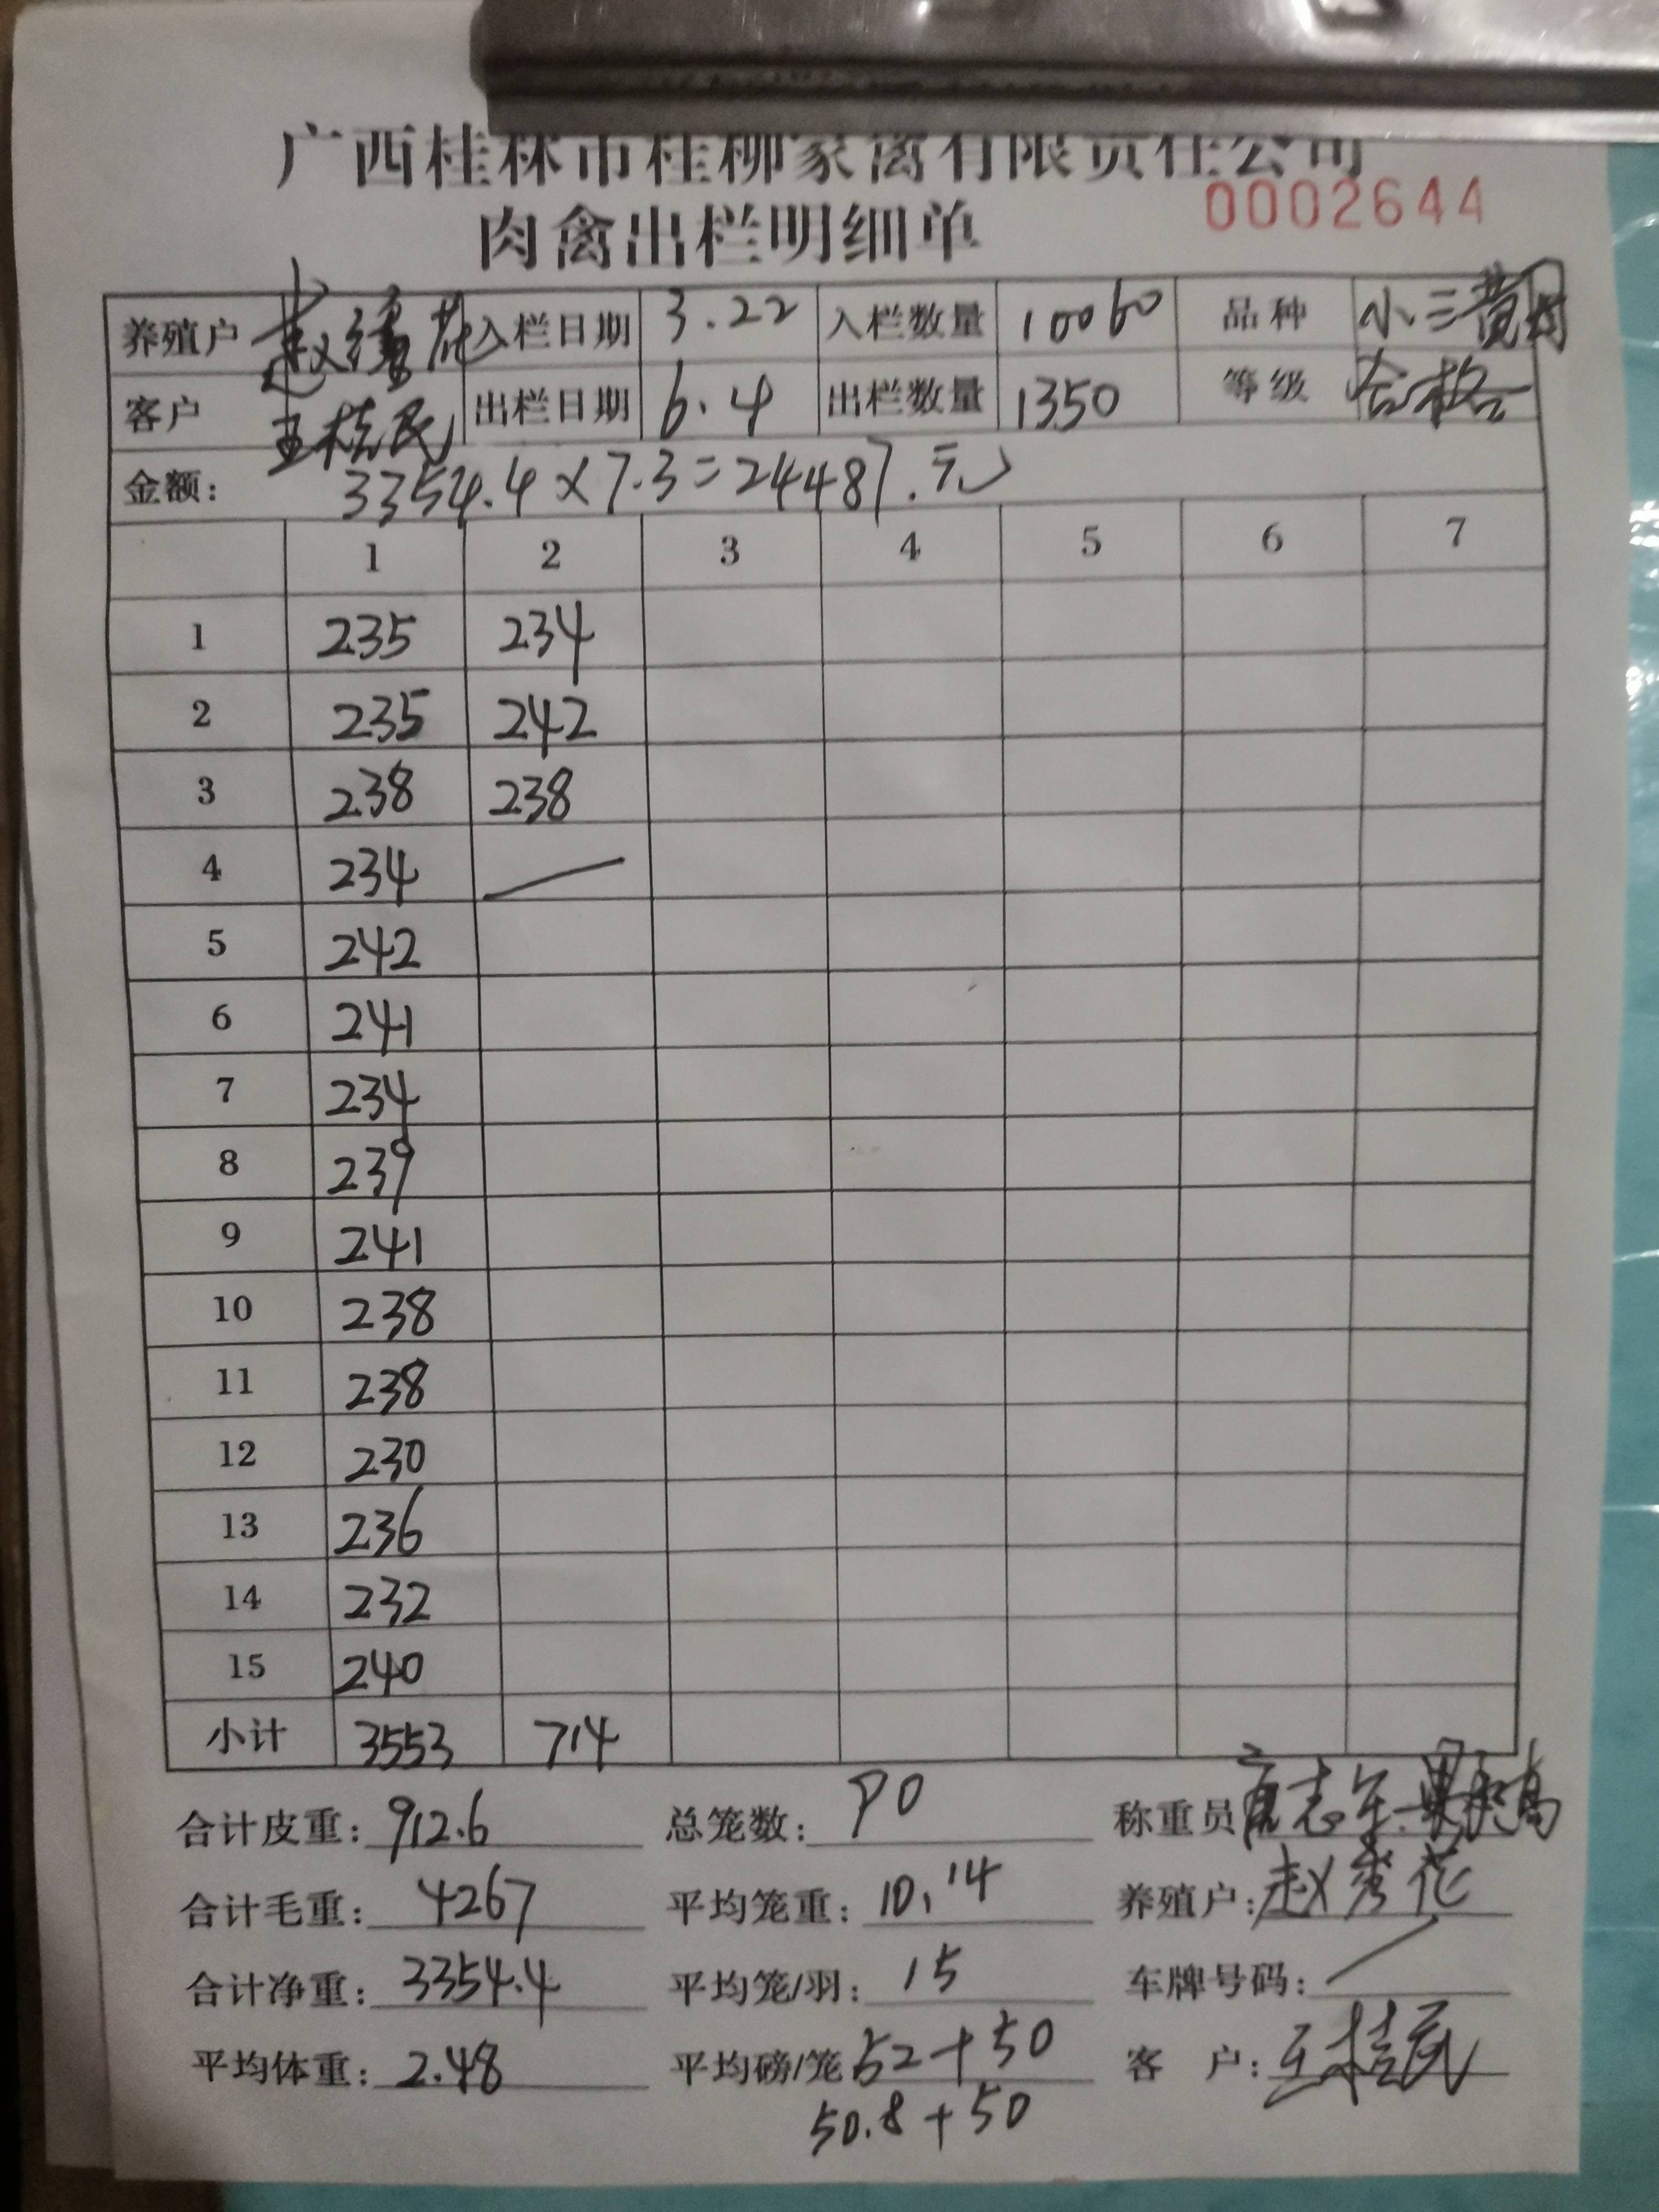 广西桂林市桂柳家禽有限责任公司
肉禽出栏明细单 0002644
养殖户 赵秀花 入栏日期 3.22 入栏数量 10060 品种 小三黄
客户 王桂民 出栏日期 6.4 出栏数量 1350 等级 合格
金额: 3354.4×7.3=24487.元
1 2 3 4 5 6 7
1 235 234
2 235 242
3 238 238
4 234
5 242
6 241
7 234
8 239
9 241
10 238
11 238
12 230
13 236
14 232
15 240
小计 3553 714
合计皮重: 912.6 总笼数: 90 称重员
合计毛重: 4267 平均笼重: 10.14 养殖户: 赵秀花
合计净重: 3354.4 平均笼/羽: 15 车牌号码:
平均体重: 2.48 平均磅/笼 52+50 客 户: 王桂民
50.8+50